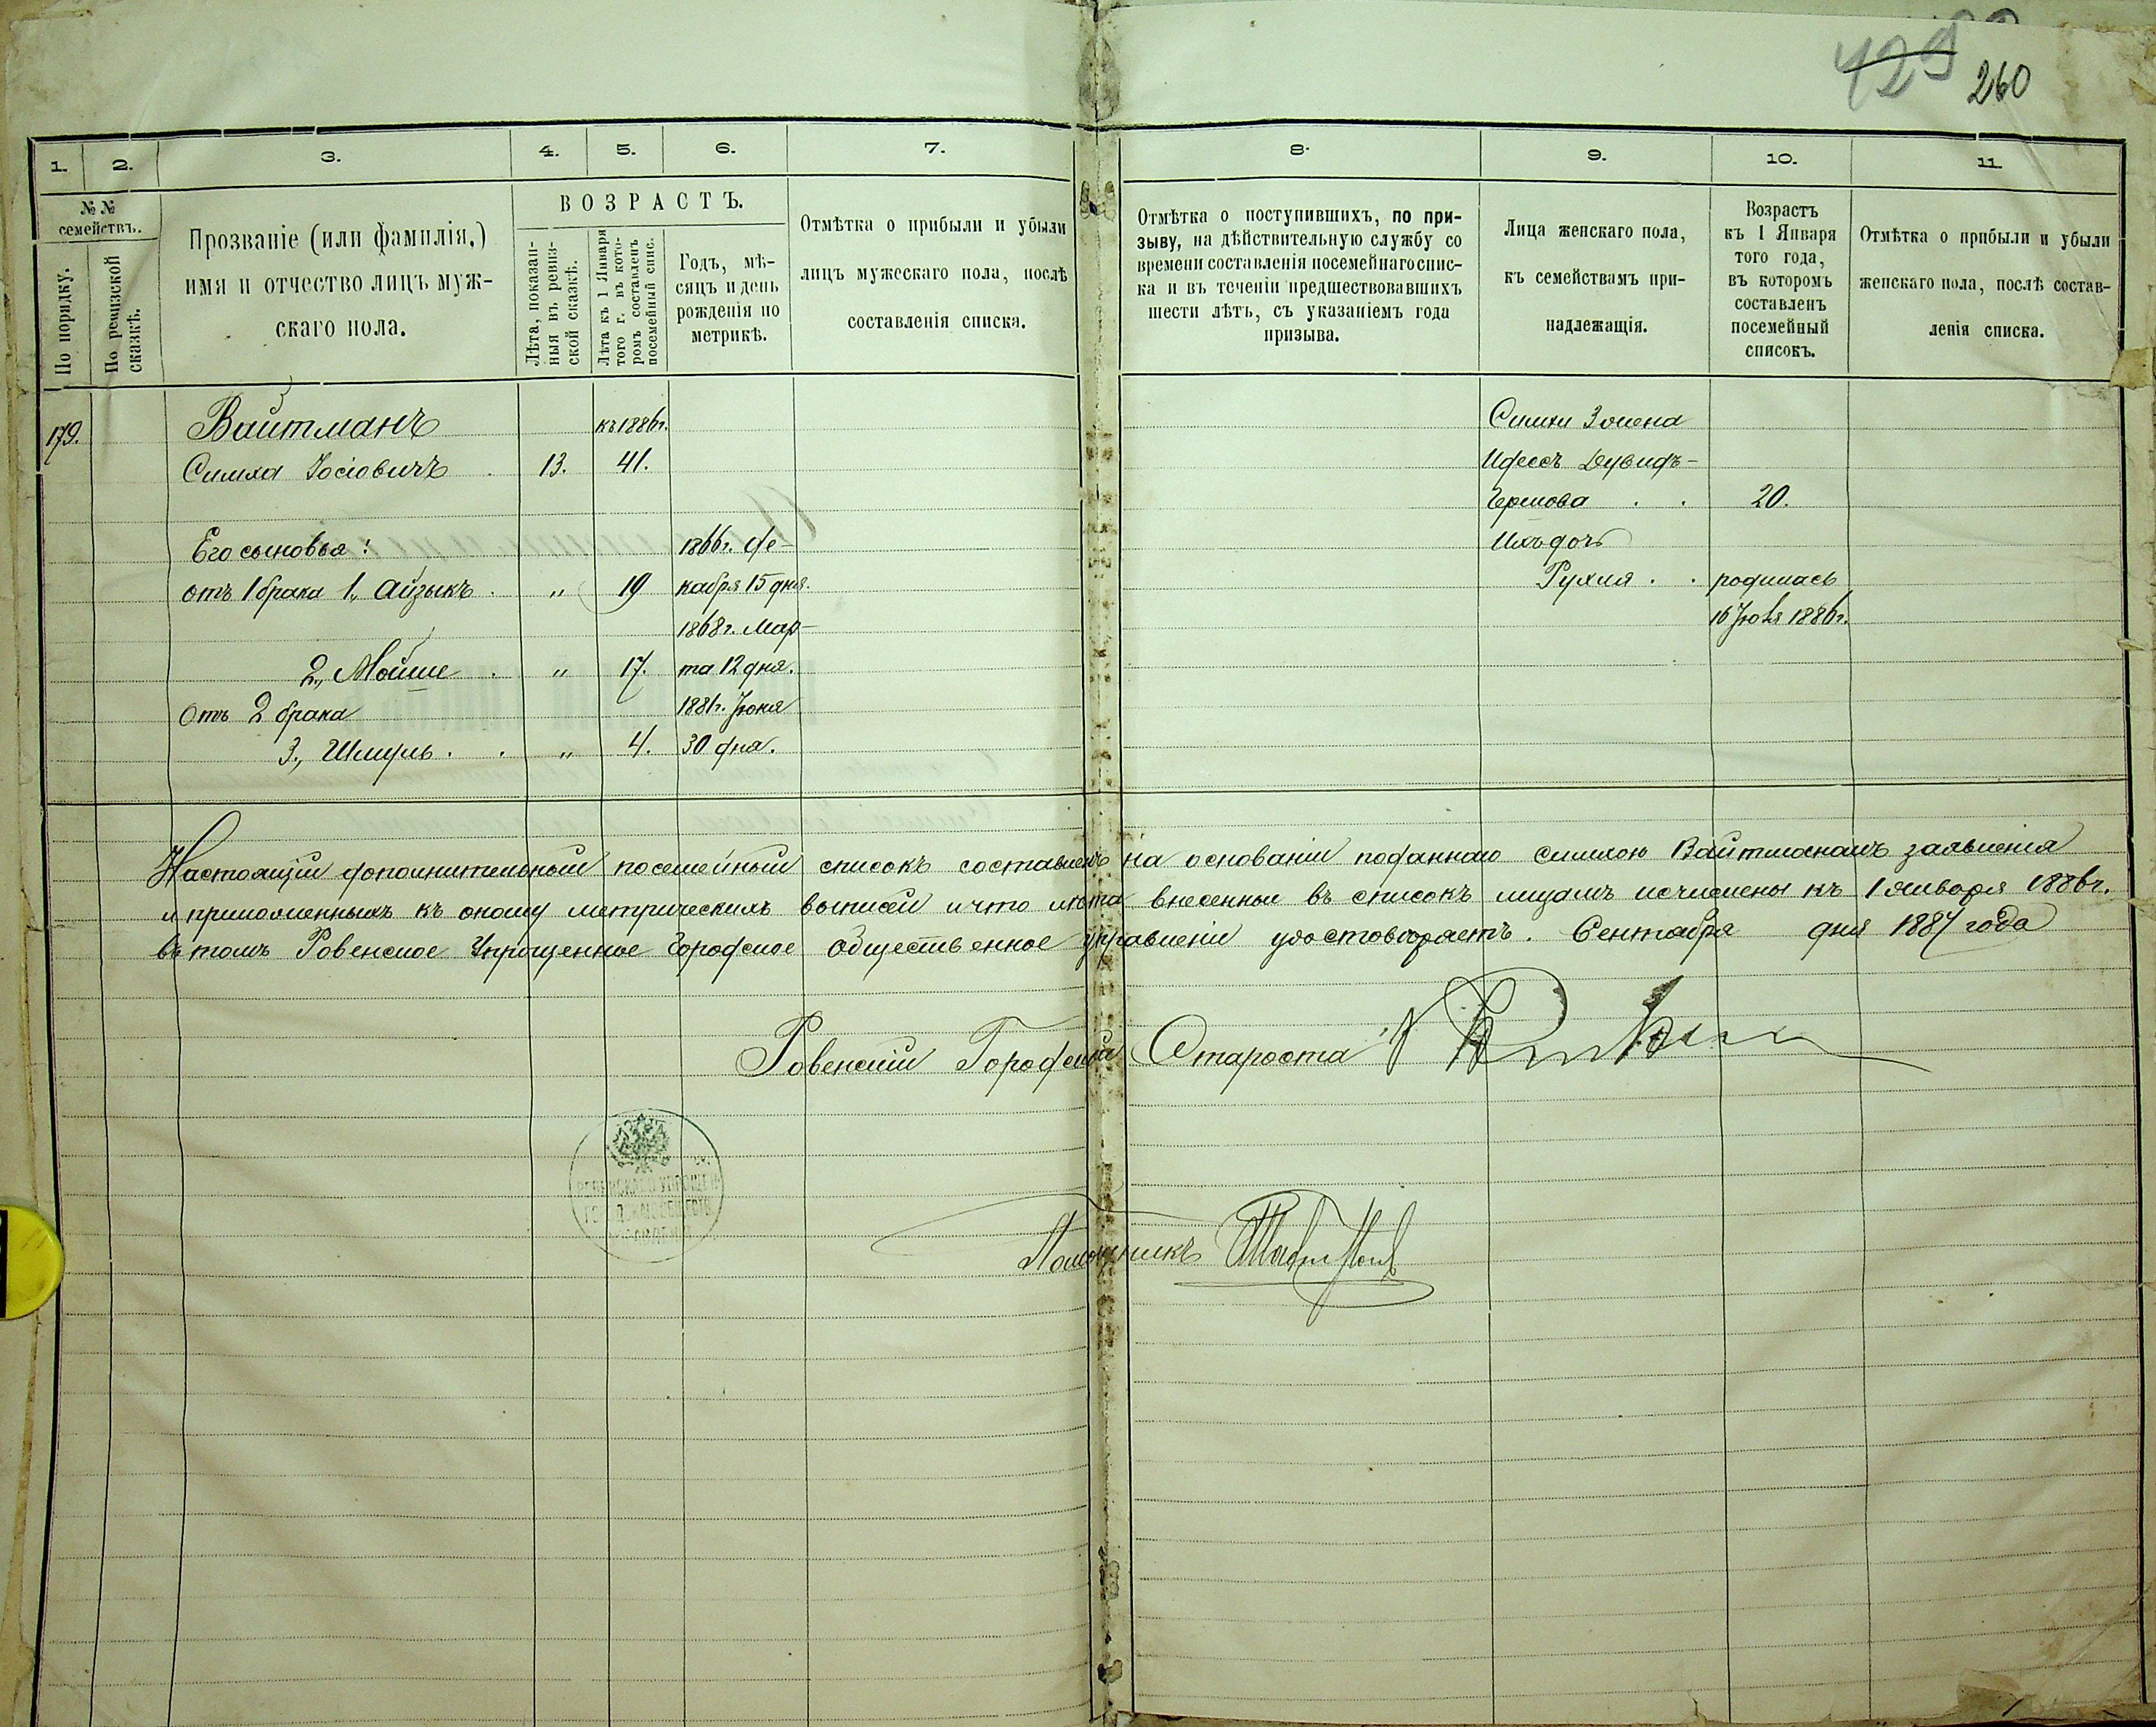 429 260
1. 2. 3. 4. 5. 6. 7. 8. 9. 10. 11.
№№ семействъ.
По порядку.
По ревизской сказкѣ.
Прозваніе (или фамилія,)
имя и отчество лицъ муж-
скаго пола.
ВОЗРАСТЪ.
Лѣта, показан-
ныя въ ревиз-
ской сказкѣ.
Лѣта къ 1 Января
того г. въ кото-
ромъ составленъ
посемейный спис.
Годъ, мѣ-
сяцъ и день
рожденія по
метрикѣ.
Отмѣтка о прибыли и убыли
лицъ мужескаго пола, послѣ
составленія списка.
Отмѣтка о поступившихъ, по при-
зыву, на дѣйствительную службу со
времени составленія посемейнаго спис-
ка и въ теченіи предшествовавшихъ
шести лѣтъ, съ указаніемъ года
призыва.
Лица женскаго пола,
къ семействамъ при-
надлежащія.
Возрастъ
къ 1 Января
того года,
въ которомъ
составленъ
посемейный
списокъ.
Отмѣтка о прибыли и убыли
женскаго пола, послѣ состав-
ленія списка.
179. Вайтманъ къ 1886г.
Симха Іосіовичъ . 13. 41.
Его сыновья: 1866г. де-
отъ 1 брака 1., Айзыкъ . „ 19 кабря 15 дня.
1868г. Мар-
2., Мойше . „ 17. та 12 дня.
Отъ 2 брака 1881г. Іюня
3., Шмуль . . „ 4. 30 дня.
Симхи 3 жена
Идессъ Дувидъ-
Гершова . . 20.
Ихъ дочь
Рухля . . родилась
16 Іюля 1886г.
Настоящій дополнительный посемейный списокъ составленъ на основаніи поданнаго Симхою Вайтманомъ заявленія
и приложенныхъ къ оному метрическихъ выписей и что лѣта внесенныхъ въ списокъ лицамъ исчислены къ 1 января 1886г.
въ томъ Ровенское Упрощенное Городское Общественное управленіе удостовѣряетъ. Сентября дня 1887 года
Ровенскій Городской Староста
РОВЕНСКАГО УПРОЩЕН.
ГОРОДСКАГО ОБЩЕСТВ.
Помощникъ